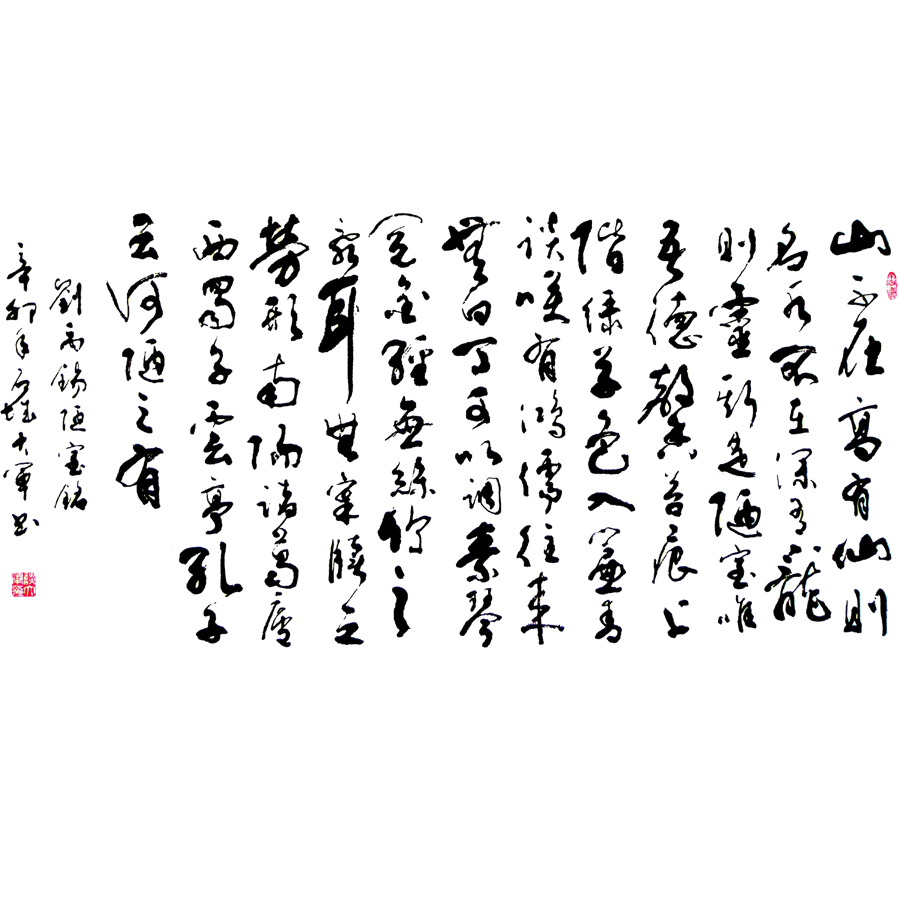 山不在高有仙則
名水不在深有龍
則靈斯是陋室唯
吾德馨苔痕上
階緑草色入簾青
談笑有鴻儒往来
無白丁可以調素琴
閱金經無絲竹之
亂耳無案牘之
勞形南陽諸葛廬
西蜀子雲亭孔子
云何陋之有
劉禹錫陋室銘
辛卯年石城大軍书